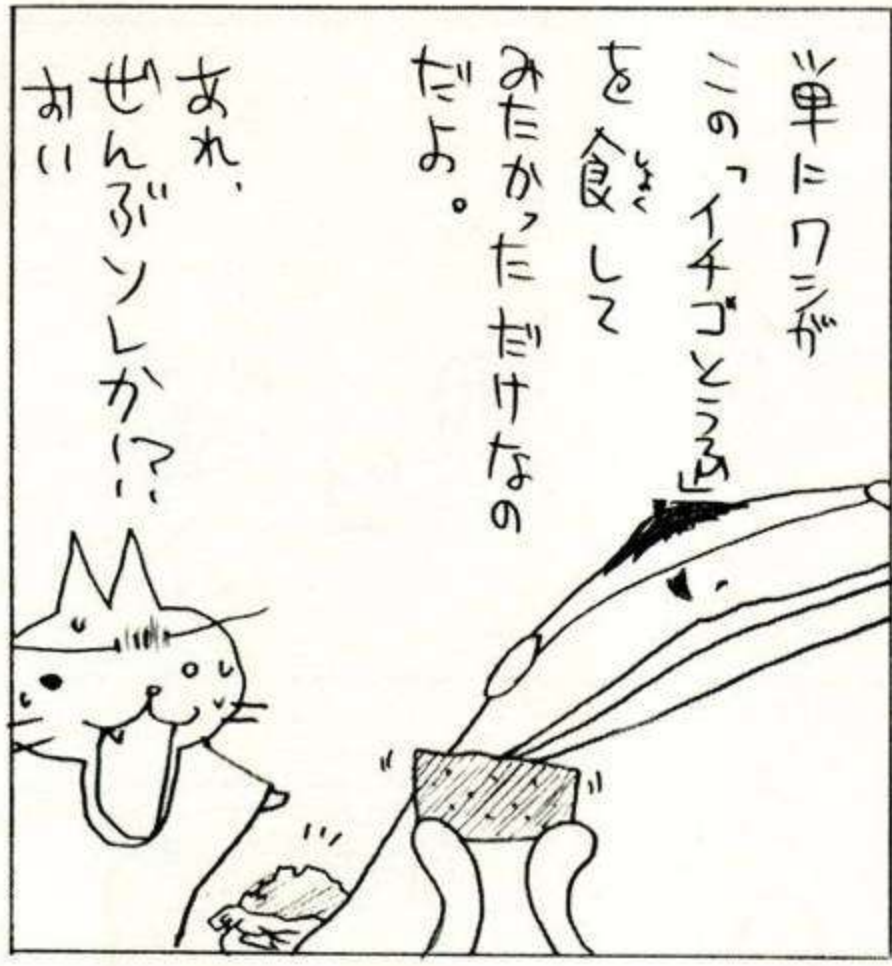 単にワシが
この「イチゴとうふ」
を食して
みたかっただけなの
だよ。
あれ、
ぜんぶソレか!?
おい